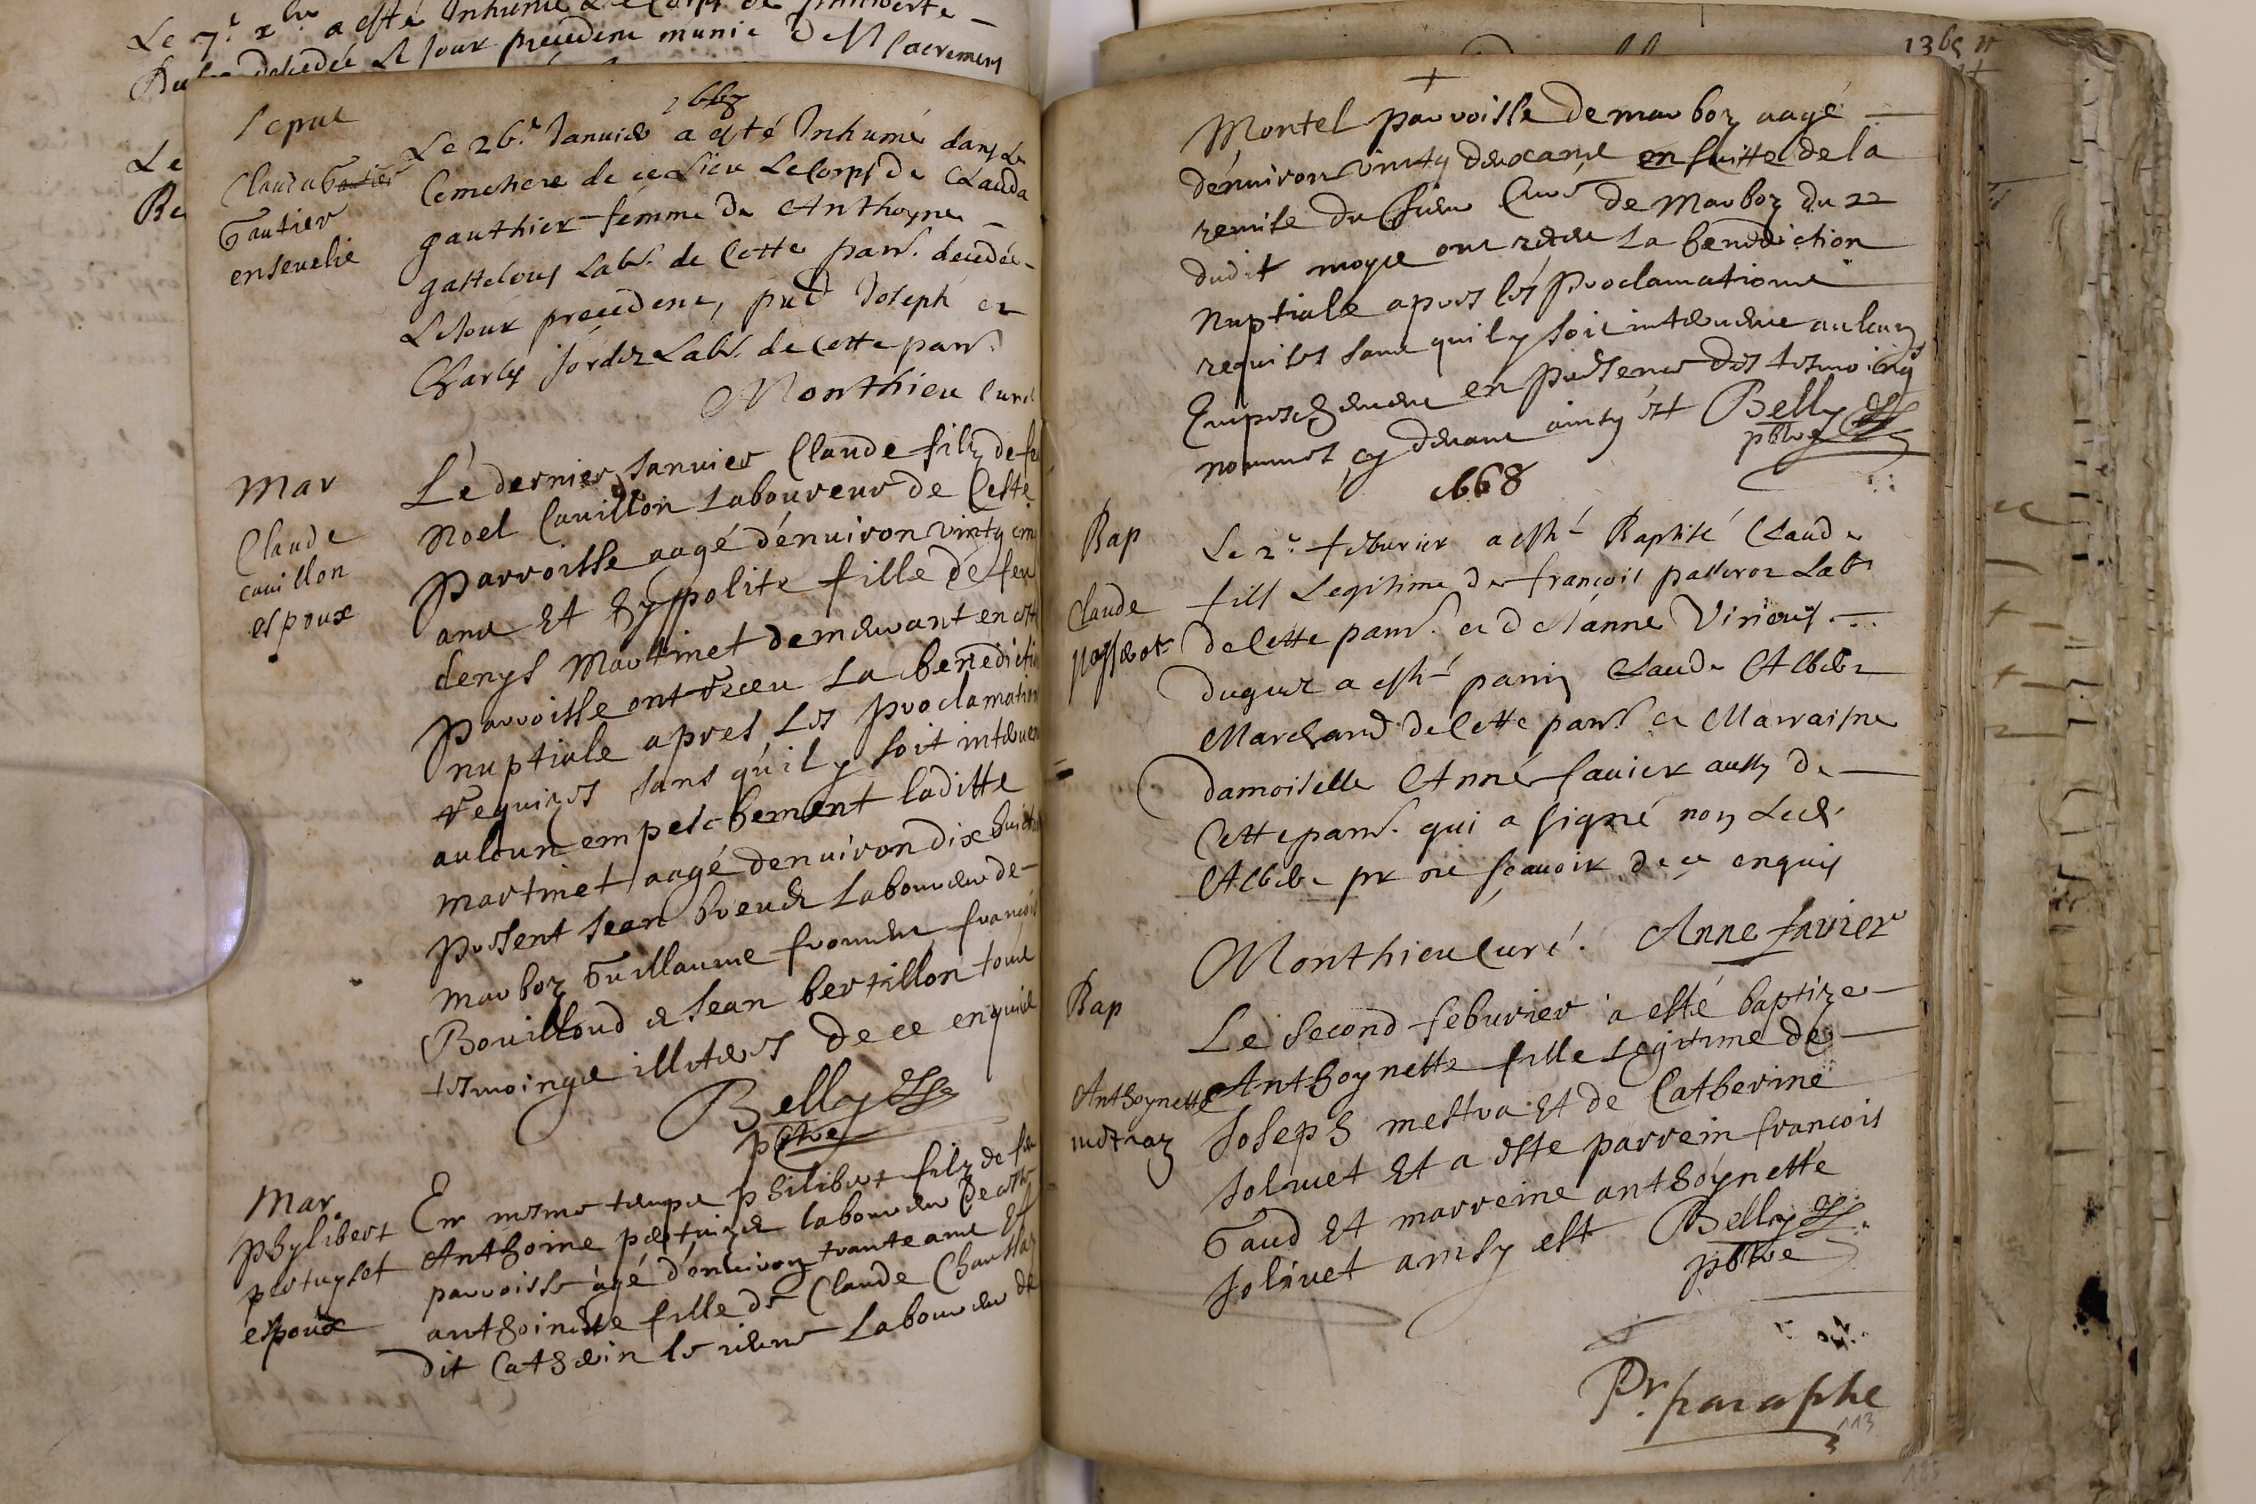 Le 7.e xbre a esté Inhumé
decedée Le Jour precedent munie des sacremens
Le
1668
Sepul
Clauda Gautier
Gautier
ensevelie
Le 26.e Januier a esté Inhumé dans Le
Cemetiere de ce Lieu Le Corps de Clauda
gauthier femme de Anthoyne
gasteloup Labr. de Cette parr. decedée
Le Jour precedent, pnt Joseph et
Charles jordez Labr. de Cette parr.
Monthieu Curé
Mar
Claude
cauillon
espoux
Lé dernier Januier Claude filz de feu
Noel Cauillon Laboureur de Ceste
parroisse aagé dénuiron vinty cinq
ans Et hyppolite fille de feu
denys Martinet demeurant en ceste
parroisse ont receu La benediction
nuptiale apres Les proclamations
requizes sans quil y soit interuenu
aulcun empeschement laditte
martinet aagé denuiron dixhuict
present Jean breuet Laboureur de
marboz Guillaume froment francois
Bouilloud et Jean bertillon tous
tesmoings illiteres de ce enquis
Belly
pbtre
Mar.
phylibert
pertuyset
espoux
En mesme temps philibert filz de feu
Anthoine pertuizet laboureur de ceste
parroisse agé dénuiron trante ans Et
anthoinette fille de Claude Chaussat
dit Catherin le uieux Laboureur de
1365
Montel parroisse de marboz aagé
dénuiron vinty deux ans en suitte de la
remise du sieur Curé de Marboz du 22
dudit moys ont receu La benediction
Nuptiale apres les proclamations
requises sans quil y soit interuenu aulcun
Empeschement en presence des tesmoings
nommes cy deuant ainsy est Belly
pbtre
1668
Bap
Claude
passerot
Le 2.e feburier a esté Baptisé Claude
fils Legitime de françois passerot Labr
de Cette parr. et de Jánne Virieux
duquel a esté parrin Claude Albert
Marchand de Cette parr. et Marraisne
damoiselle Anne fauier aussy de
Cette parr. qui a signé non Led.
Albert pr ne sçauoir de ce enquis
Monthieu Curé. Anne favier
Bap
Anthoynette
mestraz
Le second feburier a esté baptize
Anthoynette fille legitime de
Joseph mestra Et de Catherine
Joliuet Et a este parrein francois
Gaud Et marreine anthoynette
Joliuet ainsy est Belly
pbtre
Pr. paraphe
113